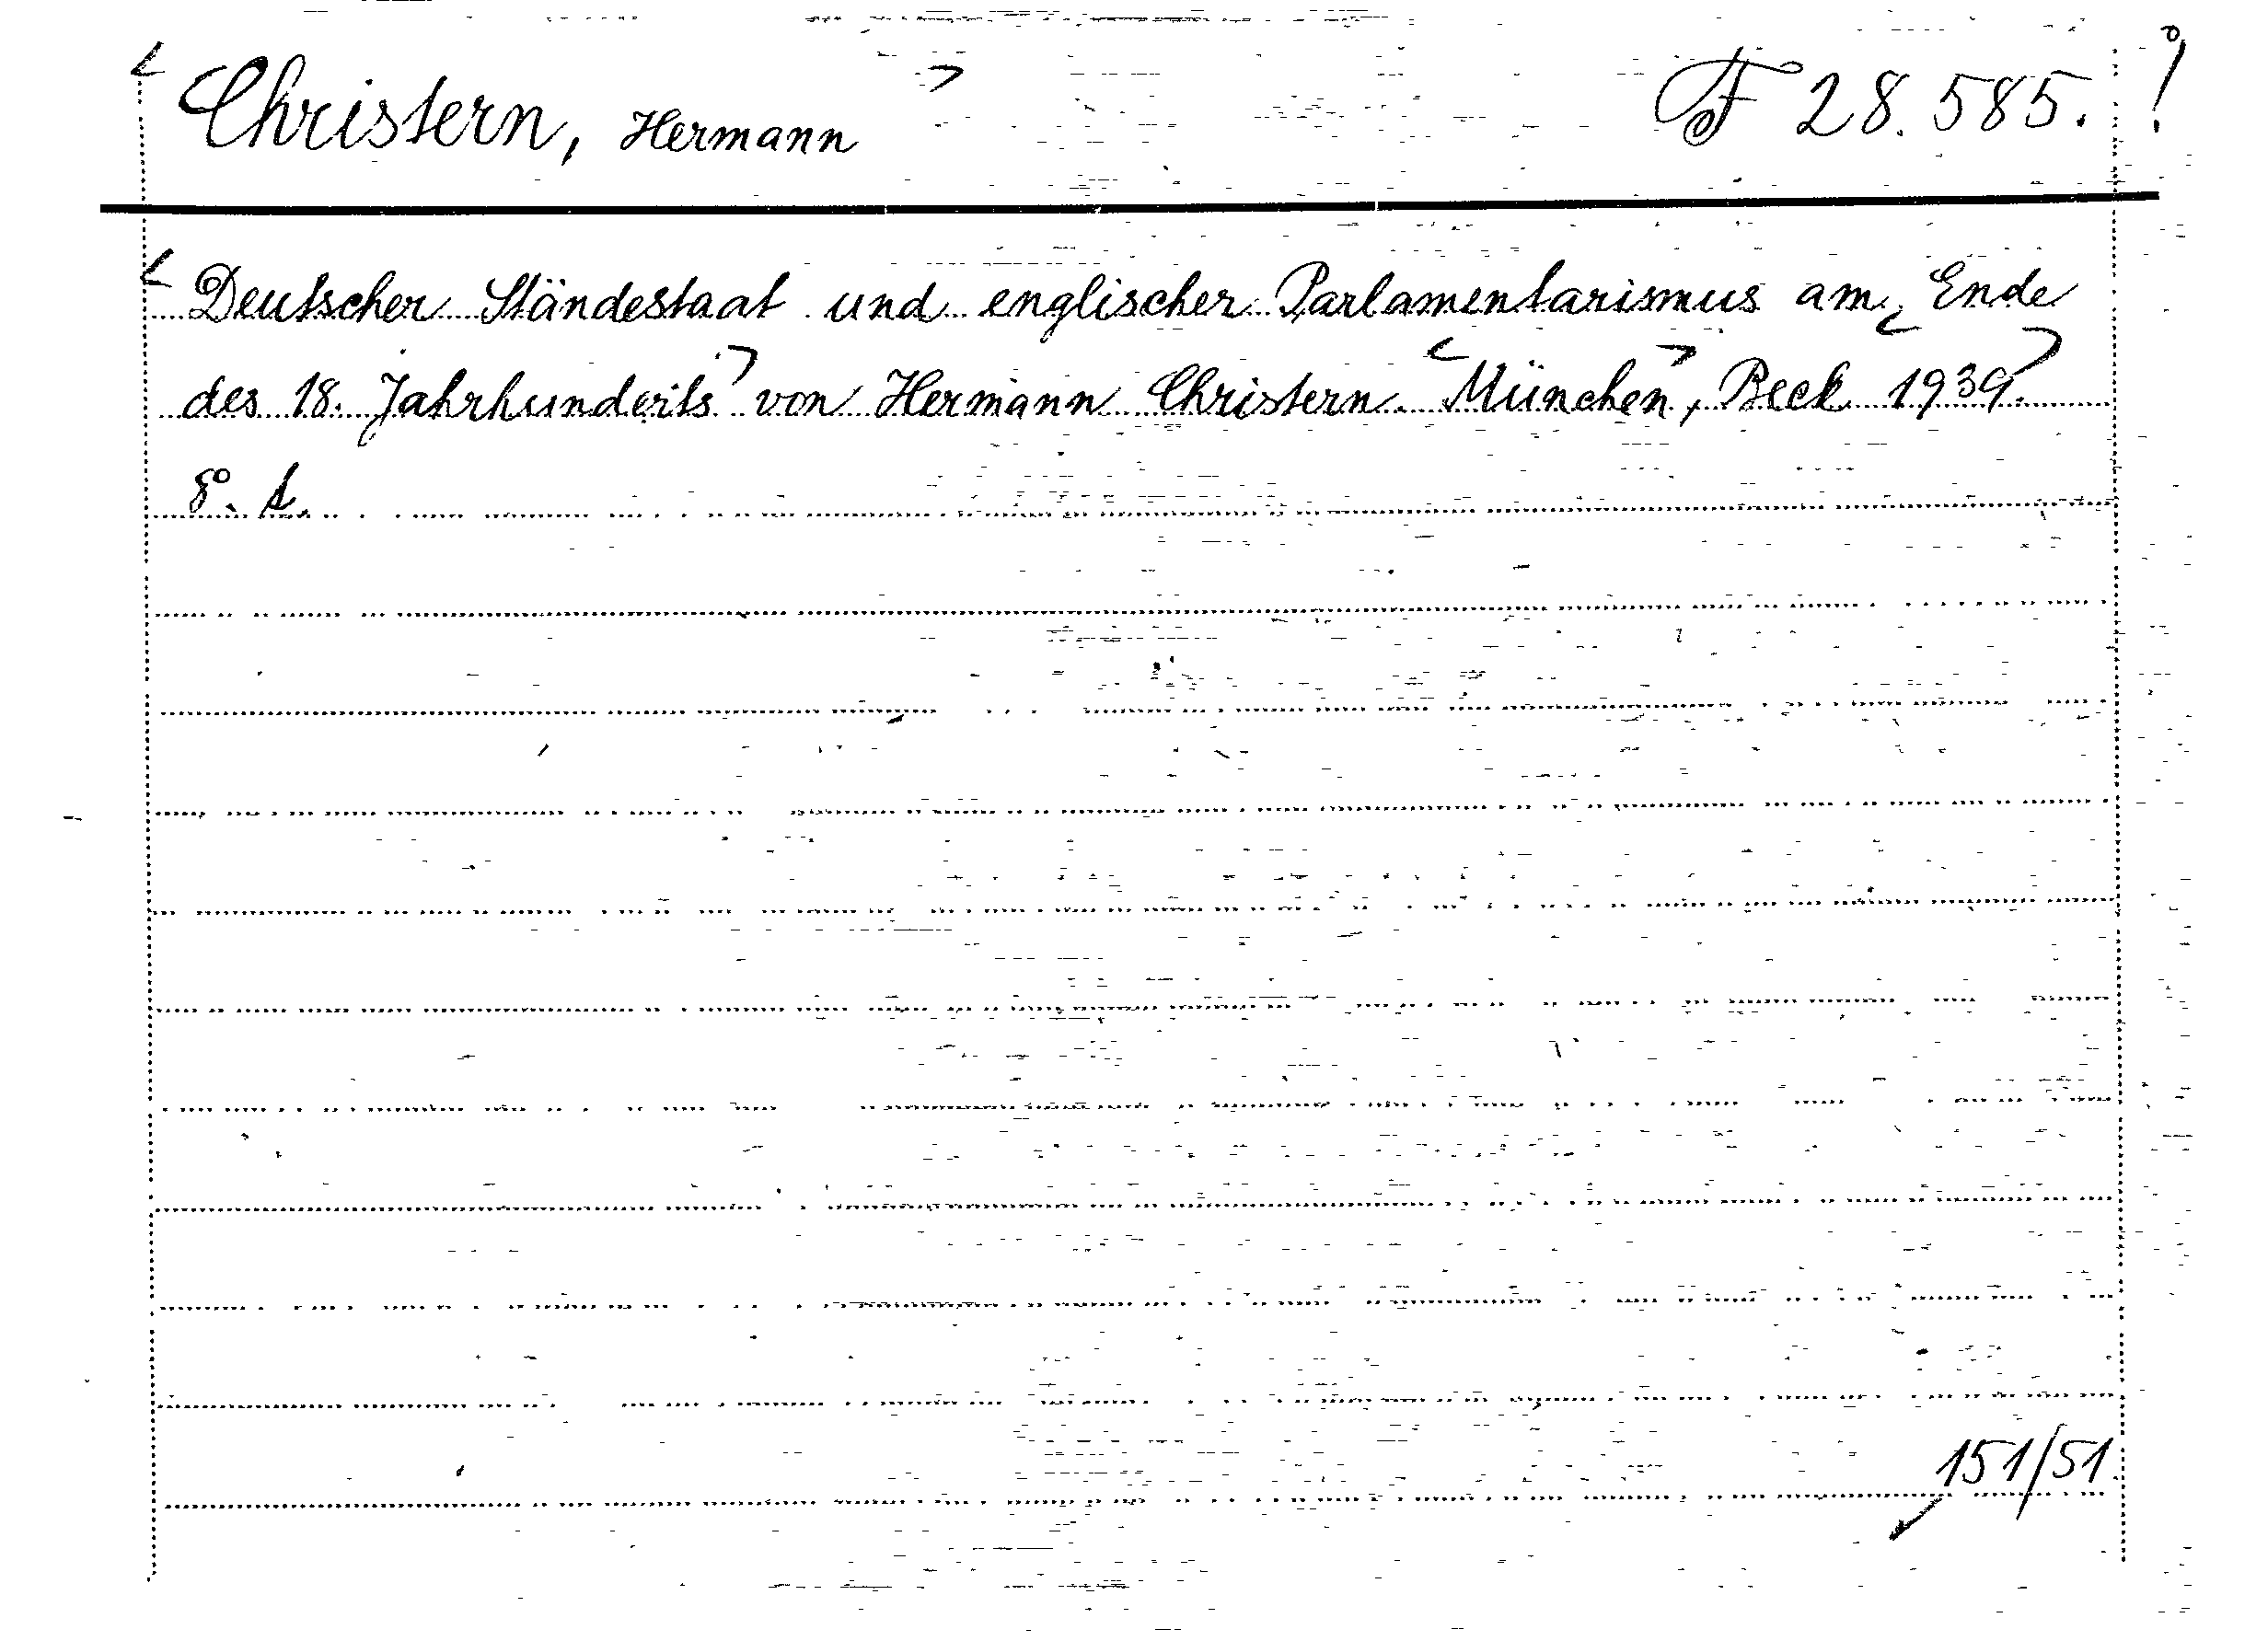 Christern, Hermann F 28.585.
Deutscher Ständestaat und englischer Parlamentarismus am Ende
des 18. Jahrhunderts von Hermann Christern. München, Beck 1939.
8°.
151/51